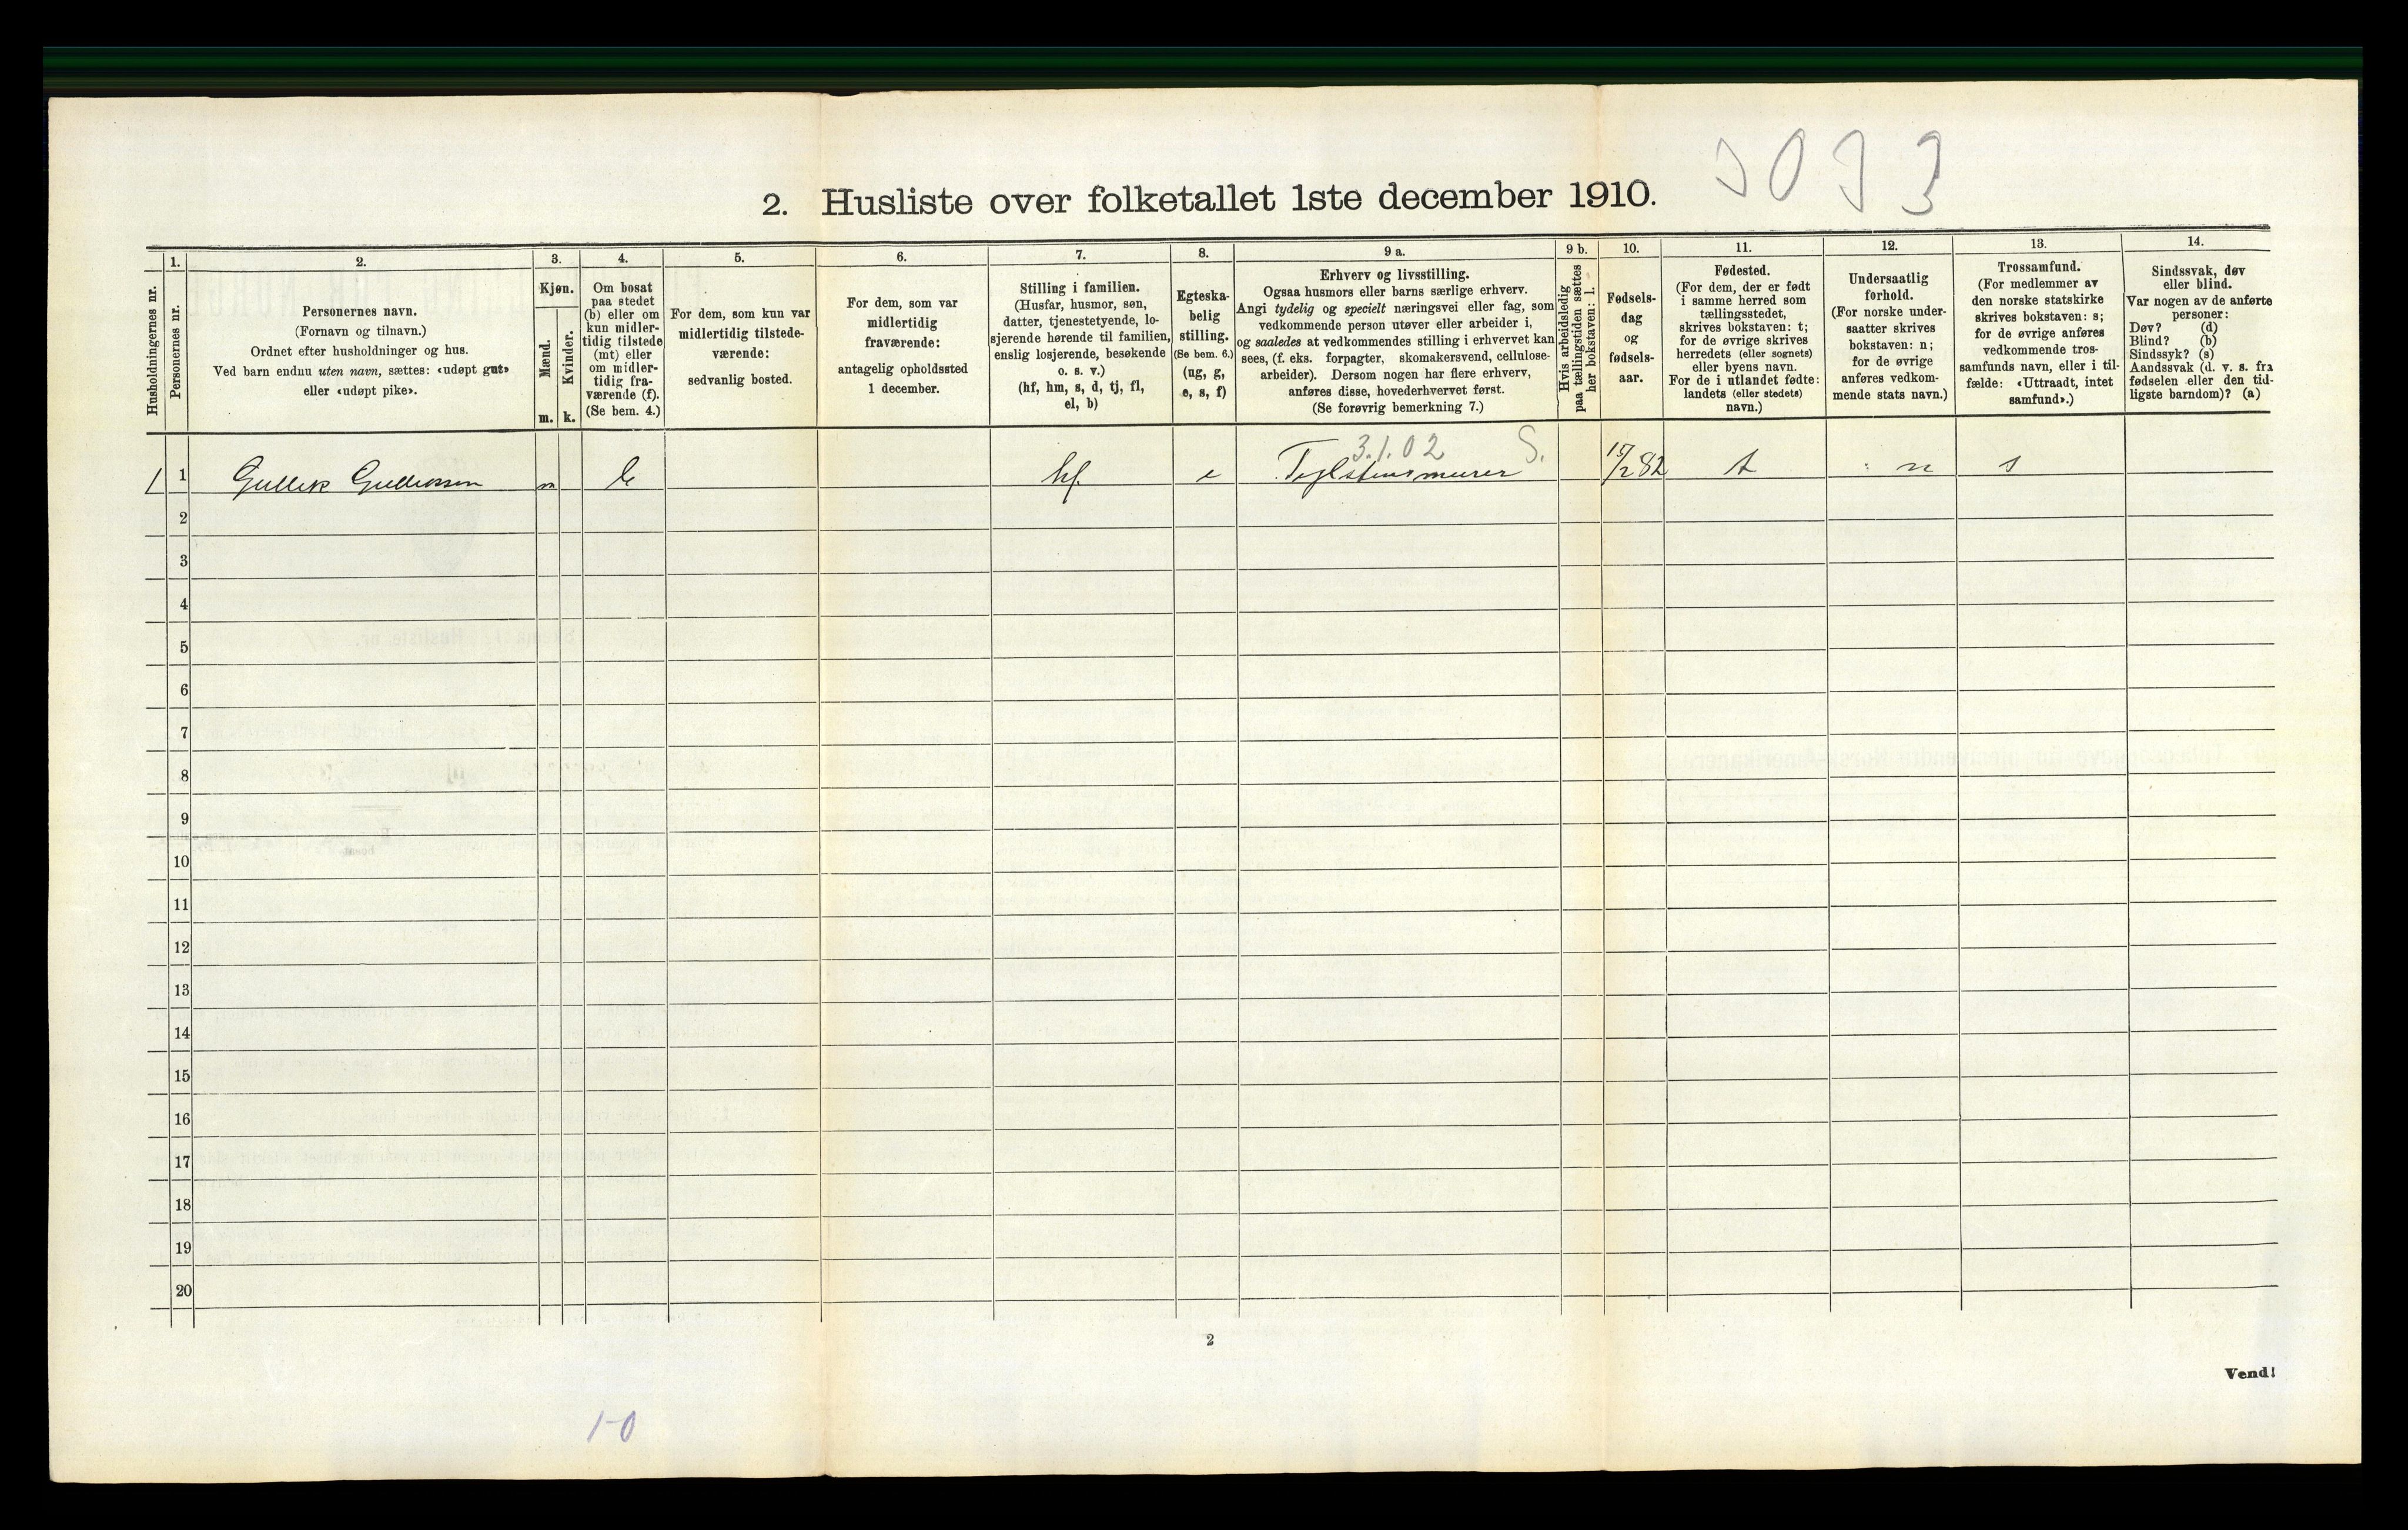 3093
2. Husliste over folketallet 1ste december 1910.
Husholdningernes nr.
1.
Personernes nr.
2.
Personernes navn.
(Fornavn og tilnavn.)
Ordnet efter husholdninger og hus.
Ved barn endnu uten navn, sættes: «udøpt gut»
eller «udøpt pike».
3.
Kjøn.
Mænd.
m.
Kvinder.
k.
4.
Om bosat
paa stedet
(b) eller om
kun midler-
tidig tilstede
(mt) eller
om midler-
tidig fra-
værende (f).
(Se bem. 4.)
5.
For dem, som kun var
midlertidig tilstede-
værende:
sedvanlig bosted.
6.
For dem, som var
midlertidig
fraværende:
antagelig opholdssted
1 december.
7.
Stilling i familien.
(Husfar, husmor, søn,
datter, tjenestetyende, lo-
sjerende hørende til familien,
enslig losjerende, besøkende
o. s. v.)
(hf, hm, s, d, tj, fl,
el, b)
8.
Egteska-
belig
stilling.
(Se bem. 6.)
(ug, g,
e, s, f)
9 a.
Erhverv og livsstilling.
Ogsaa husmors eller barns særlige erhverv.
Angi tydelig og specielt næringsvei eller fag, som
vedkommende person utøver eller arbeider i,
og saaledes at vedkommendes stilling i erhvervet kan
sees, (f. eks. forpagter, skomakersvend, cellulose-
arbeider). Dersom nogen har flere erhverv,
anføres disse, hovederhvervet først.
(Se forøvrig bemerkning 7.)
9 b.
Hvis arbeidsledig
paa tællingstiden sættes
her bokstaven: l.
10.
Fødsels-
dag
og
fødsels-
aar.
11.
Fødested.
(For dem, der er født
i samme herred som
tællingsstedet,
skrives bokstaven: t;
for de øvrige skrives
herredets (eller sognets)
eller byens navn.
For de i utlandet fødte:
landets (eller stedets)
navn.)
12.
Undersaatlig
forhold.
(For norske under-
saatter skrives
bokstaven: n;
for de øvrige
anføres vedkom-
mende stats navn.)
13.
Trossamfund.
(For medlemmer av
den norske statskirke
skrives bokstaven: s;
for de øvrige anføres
vedkommende tros-
samfunds navn, eller i til-
fælde: «Uttraadt, intet
samfund».)
14.
Sindssvak, døv
eller blind.
Var nogen av de anførte
personer:
Døv? (d)
Blind? (b)
Sindssyk? (s)
Aandssvak (d. v. s. fra
fødselen eller den tid-
ligste barndom)? (a)
3.1.02 S.
1 1 Gullik Gulliksen m b hf. e Teglstensmurer 15/2 82 t n s
2
3
4
5
6
7
8
9
10
11
12
13
14
15
16
17
18
19
20
2
Vend!
1-0